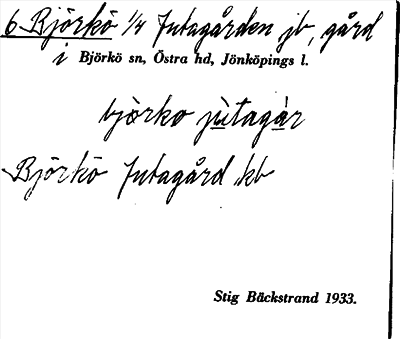 6 Björkö 1/4 Jutagården jb, gård
i Björkö sn, Östra hd, Jönköpings l.
björko jùtagàr
Björkö Jutagård kb
Stig Bäckstrand 1933.